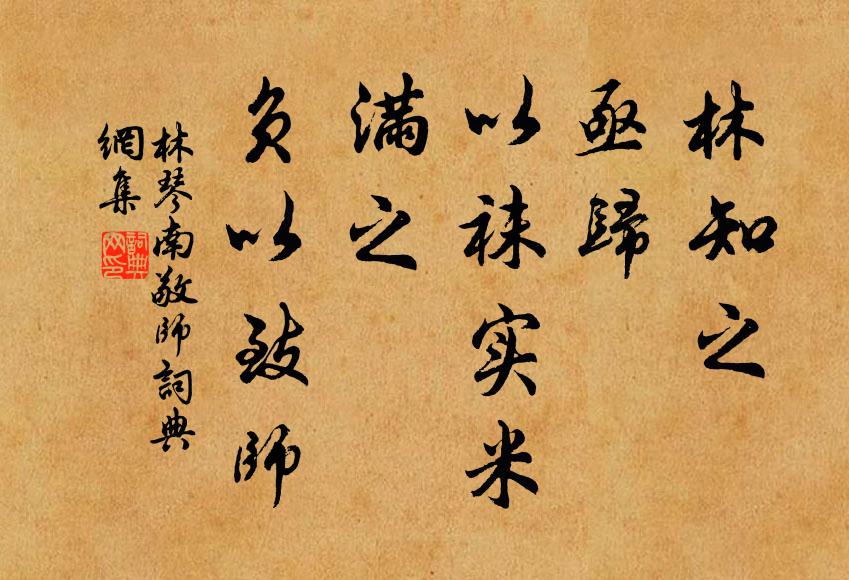 林知之
亟歸
以袜实米
满之
负以致师
林琴南敬師詞典
網集
詞典
网印